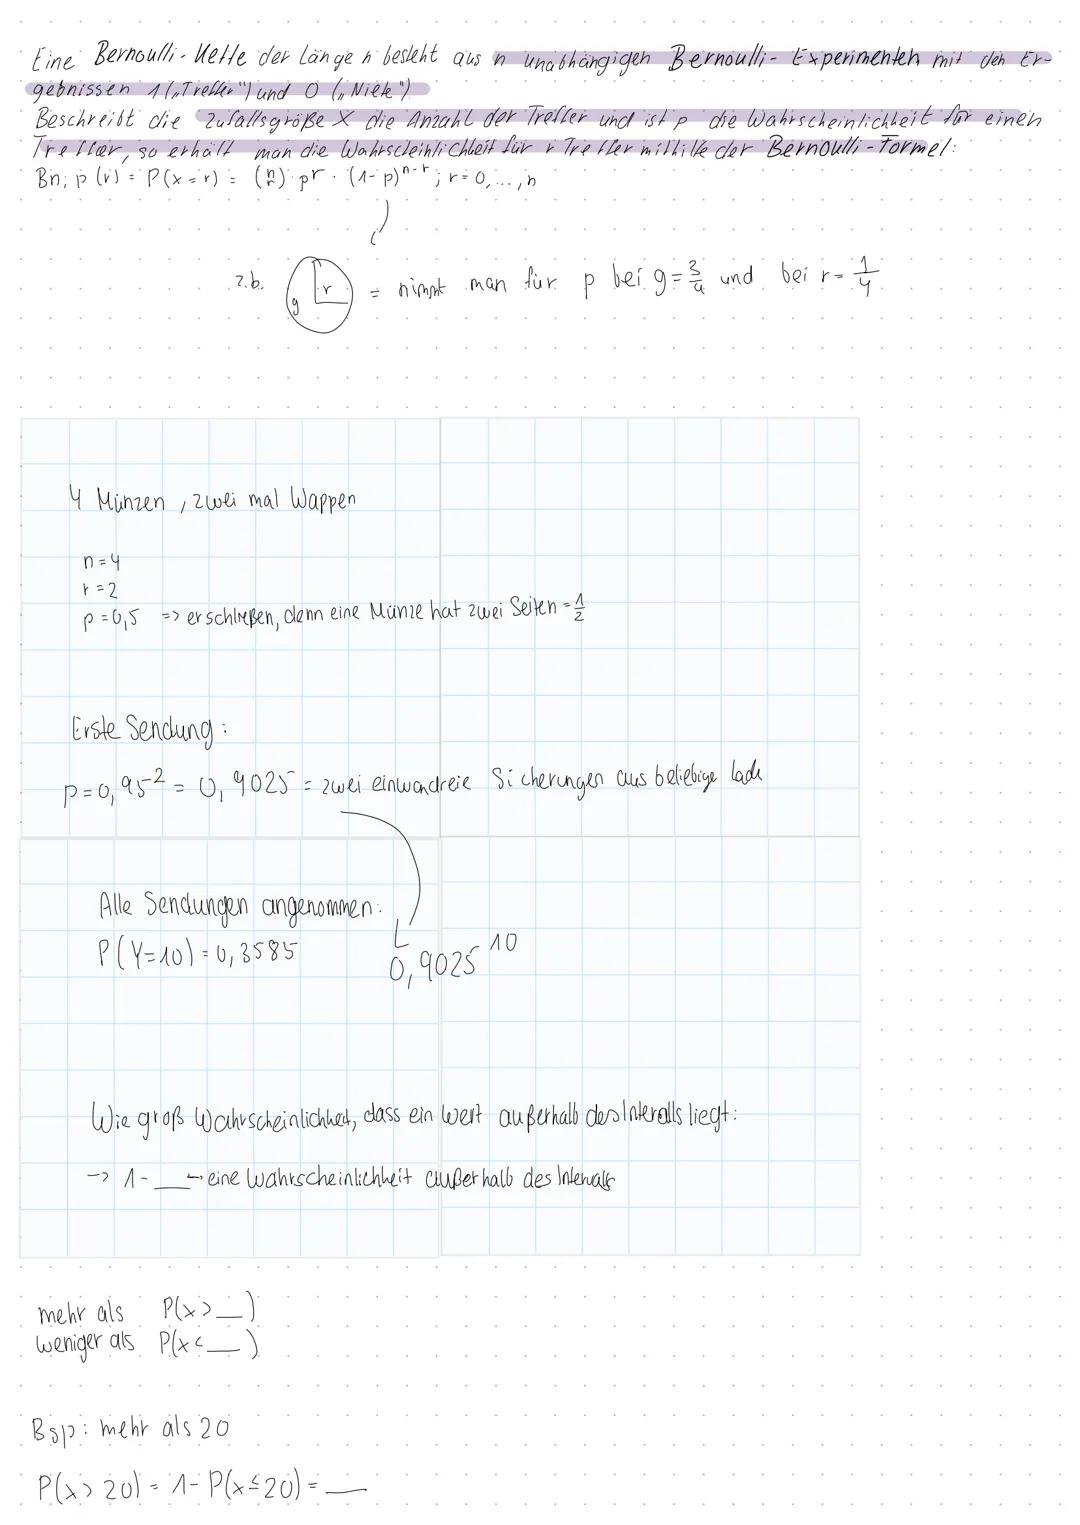 Eine Bernoulli-Kette der Länge n besteht aus n unabhängigen Bernoulli-Experimenten mit den Er-
gebnissen 1 („Treffer") und 0 („Niete")
Beschreibt die Zufallsgröße X die Anzahl der Treffer und ist p die Wahrscheinlichkeit für einen
Treffer, so erhält man die Wahrscheinlichkeit für r Treffer mithilfe der Bernoulli-Formel:
Bn; p (r) = P(x=r) = (n r) · p^r · (1-p)^n-r ; r=0, ..., n
z.b. g r = nimmt man für p bei g = 3/4 und bei r = 1/4
4 Münzen, zwei mal Wappen
n=4
r=2
p=0,5 => erschließen, denn eine Münze hat zwei Seiten = 1/2
Erste Sendung:
p=0,95^2 = 0,9025 = zwei einwandreie Sicherungen aus beliebige Lade
Alle Sendungen angenommen:
P(Y=10) = 0,3585
0,9025^10
Wie groß Wahrscheinlichkeit, dass ein Wert außerhalb des Interalls liegt:
-> 1-___ eine Wahrscheinlichkeit außerhalb des Intervalls
mehr als P(x>__)
weniger als P(x<__)
Bsp: mehr als 20
P(x>20) = 1-P(x≤20) = __